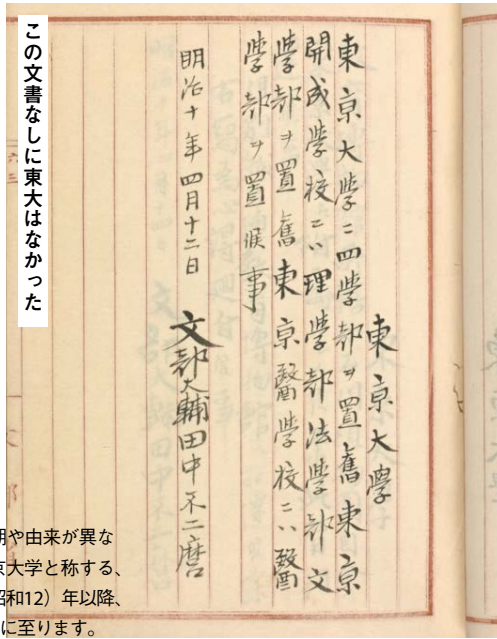 この文書なしに東大はなかった
東京大學
東京大學ニ四學部ヲ置舊東京
開成學校ニハ理學部法學部文
學部ヲ置舊東京醫學校ニハ醫
學部ヲ置候事
明治十年四月十二日
文部大輔田中不二麿
期や由来が異な
京大学と称する、
昭和12）年以降、
に至ります。